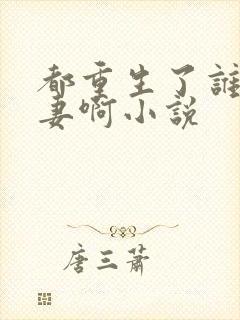 都重生了誰
妻啊小説
唐三蕭